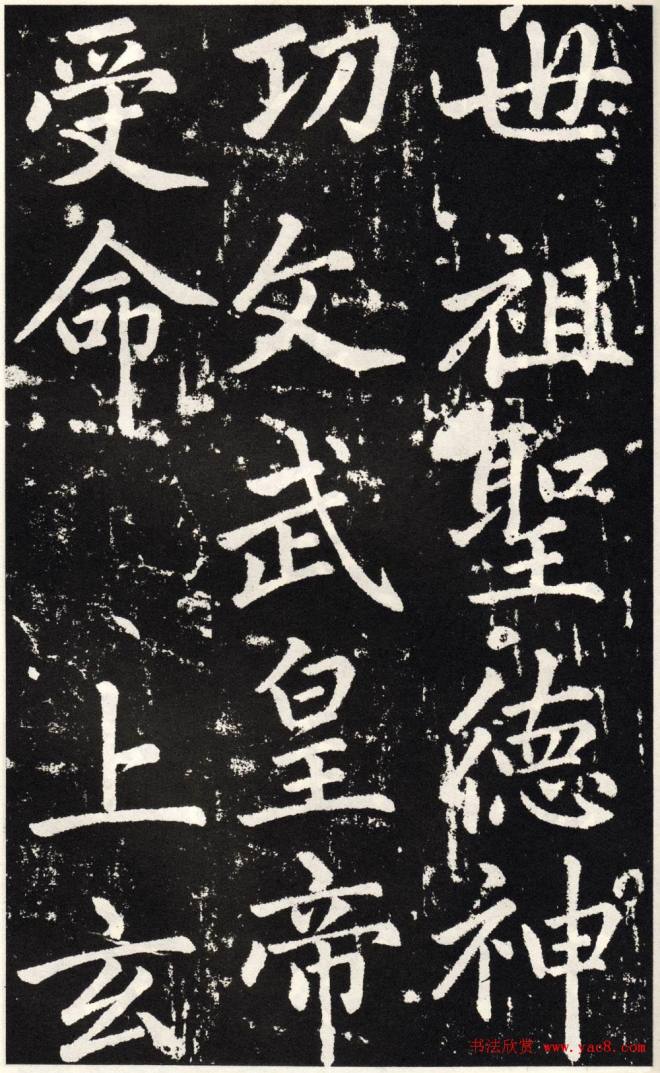 世祖聖德神
功文武皇帝
受命 上玄
书法欣赏 www.yac8.com